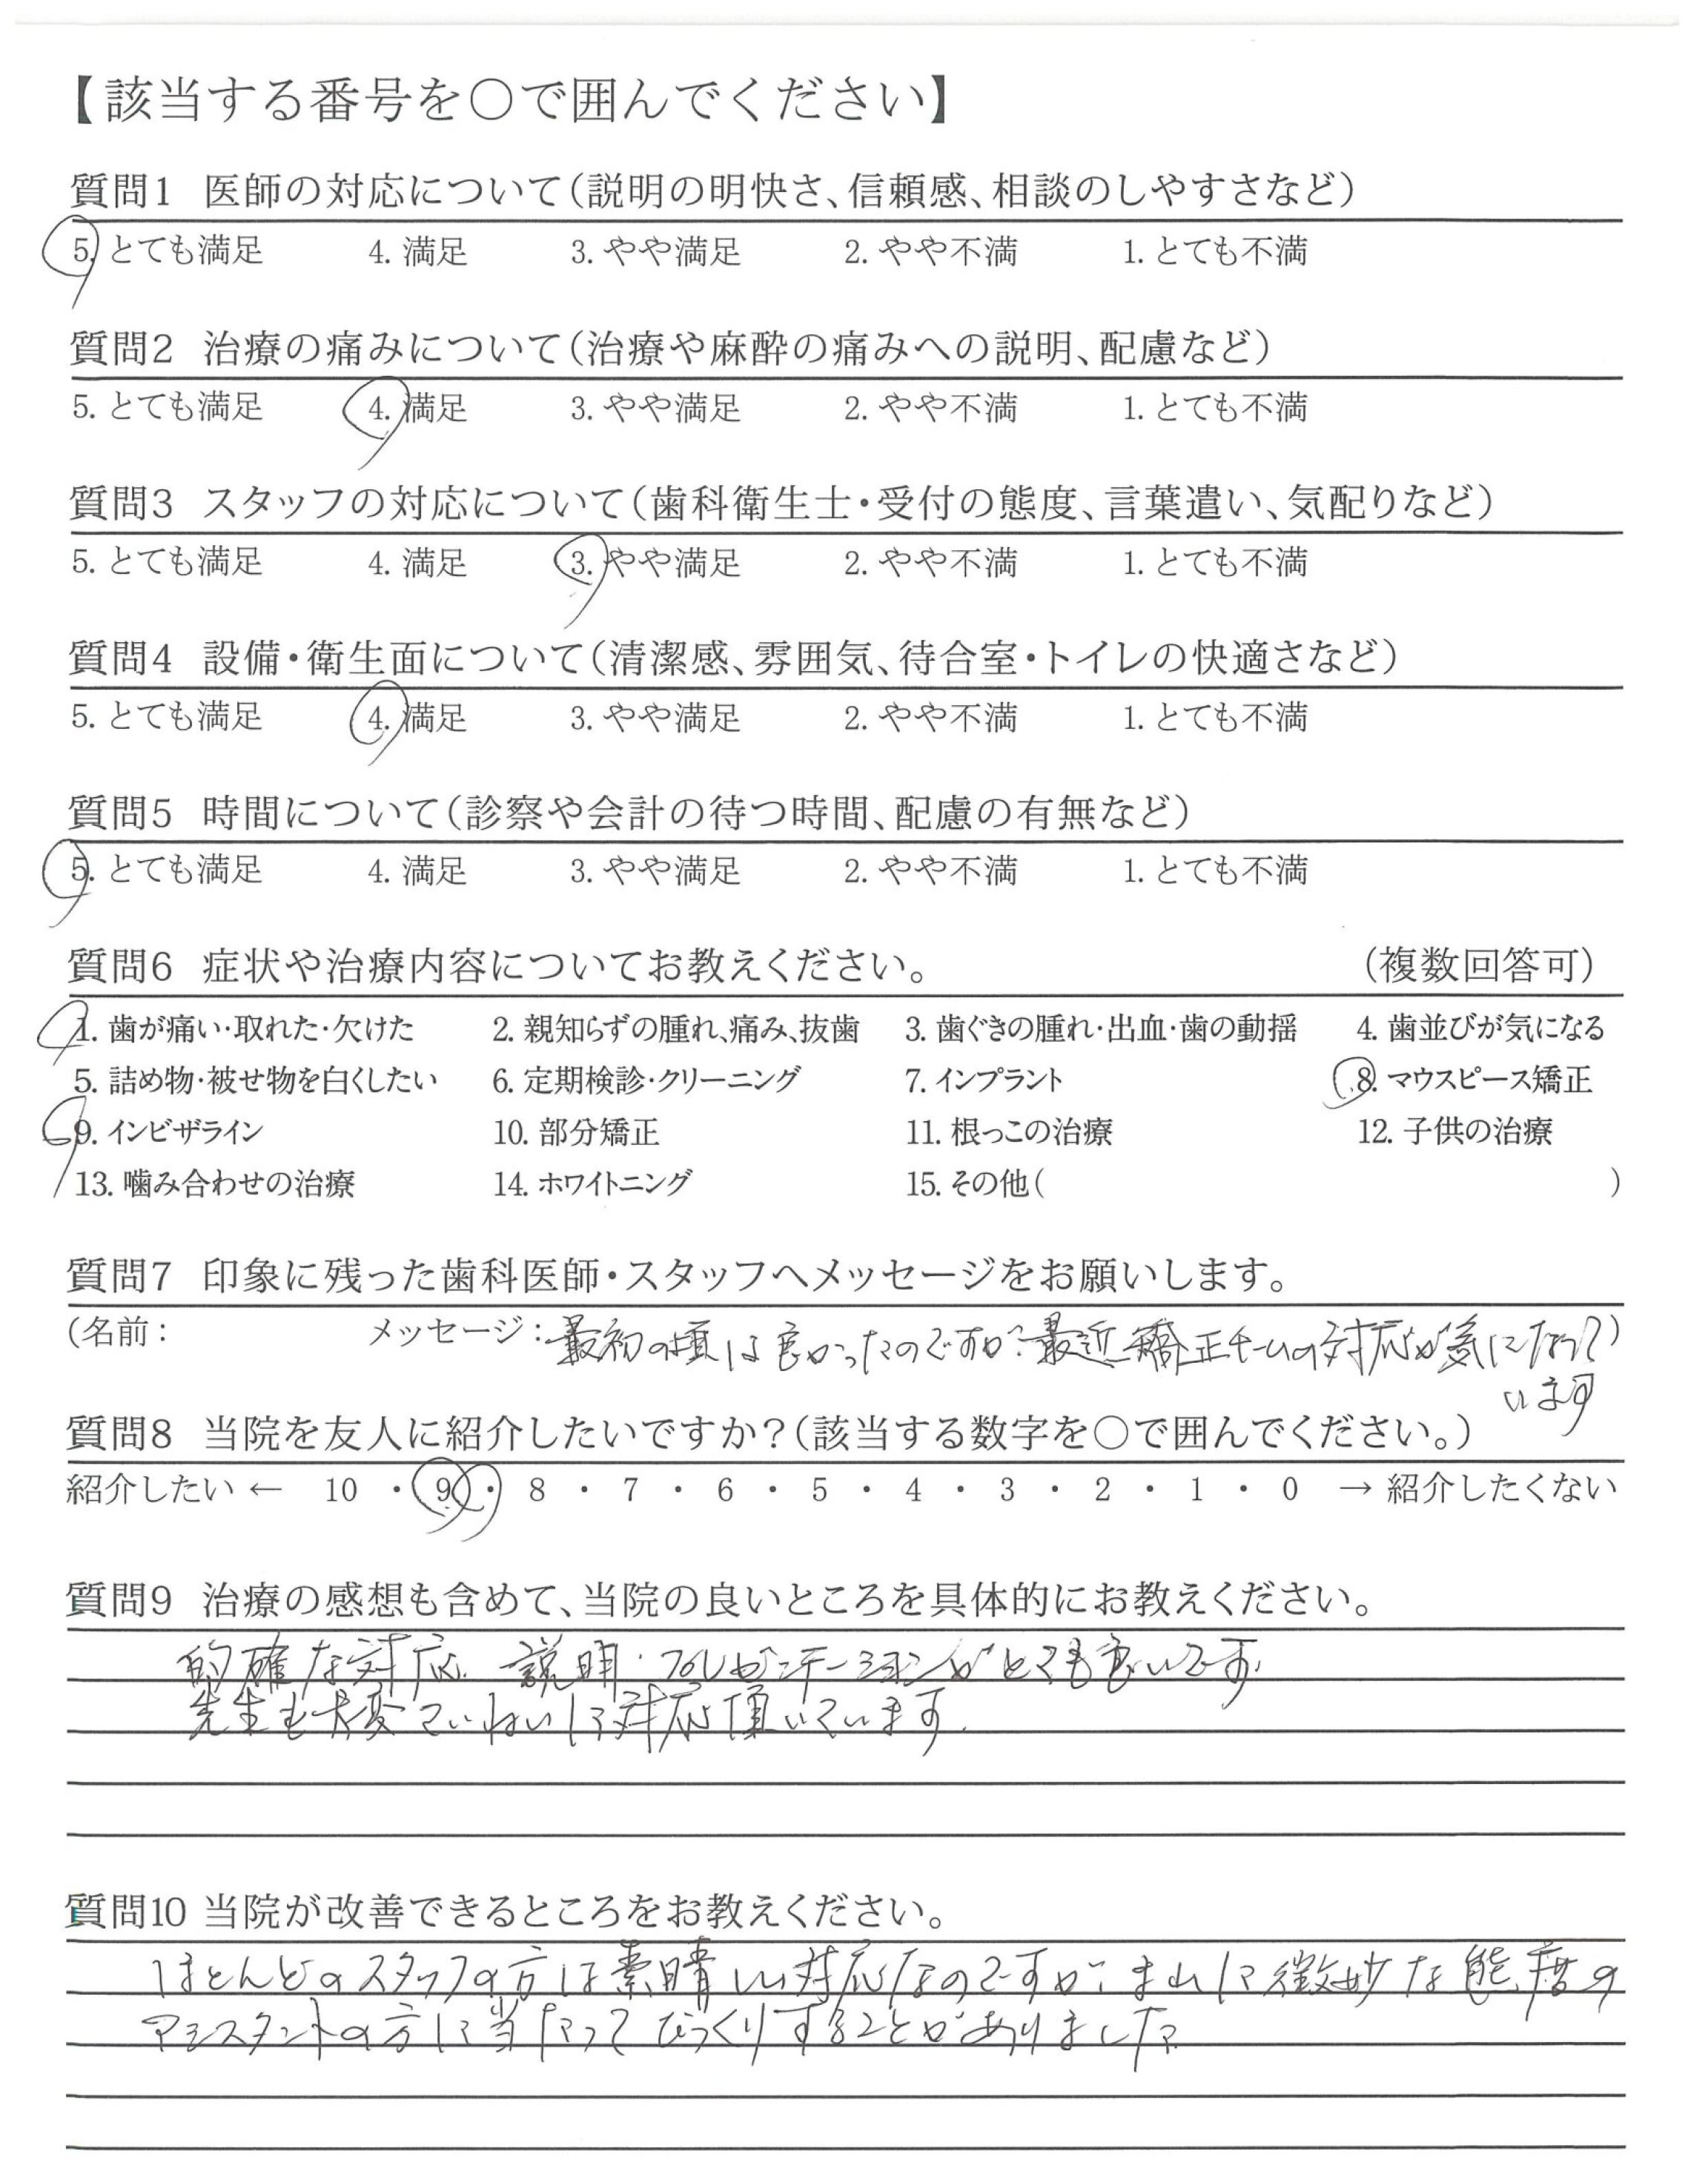 【該当する番号を○で囲んでください】
質問1 医師の対応について(説明の明快さ、信頼感、相談のしやすさなど)
5. とても満足 4. 満足 3. やや満足 2. やや不満 1. とても不満
質問2 治療の痛みについて(治療や麻酔の痛みへの説明、配慮など)
5. とても満足 4. 満足 3. やや満足 2. やや不満 1. とても不満
質問3 スタッフの対応について(歯科衛生士・受付の態度、言葉遣い、気配りなど)
5. とても満足 4. 満足 3. やや満足 2. やや不満 1. とても不満
質問4 設備・衛生面について(清潔感、雰囲気、待合室・トイレの快適さなど)
5. とても満足 4. 満足 3. やや満足 2. やや不満 1. とても不満
質問5 時間について(診察や会計の待つ時間、配慮の有無など)
5. とても満足 4. 満足 3. やや満足 2. やや不満 1. とても不満
質問6 症状や治療内容についてお教えください。 (複数回答可)
1. 歯が痛い・取れた・欠けた 2. 親知らずの腫れ、痛み、抜歯 3. 歯ぐきの腫れ・出血・歯の動揺 4. 歯並びが気になる
5. 詰め物・被せ物を白くしたい 6. 定期検診・クリーニング 7. インプラント 8. マウスピース矯正
9. インビザライン 10. 部分矯正 11. 根っこの治療 12. 子供の治療
13. 噛み合わせの治療 14. ホワイトニング 15. その他( )
質問7 印象に残った歯科医師・スタッフへメッセージをお願いします。
(名前: メッセージ: 最初の頃は良かったのですが最近矯正チームの対応が気になって)
います
質問8 当院を友人に紹介したいですか?(該当する数字を○で囲んでください。)
紹介したい ← 10 ・ 9 ・ 8 ・ 7 ・ 6 ・ 5 ・ 4 ・ 3 ・ 2 ・ 1 ・ 0 → 紹介したくない
質問9 治療の感想も含めて、当院の良いところを具体的にお教えください。
的確な対応、説明・プレゼンテーションがとても良いです。
先生も大変ていねいに対応頂いています。
質問10 当院が改善できるところをお教えください。
ほとんどのスタッフの方は素晴しい対応なのですが、まれに微妙な態度の
アシスタントの方に当たってびっくりすることがありました